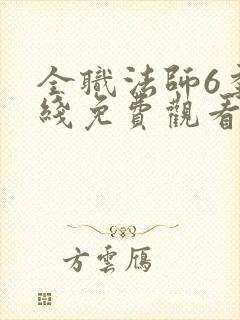 全職法師6
綫免費觀看
方雲鴈